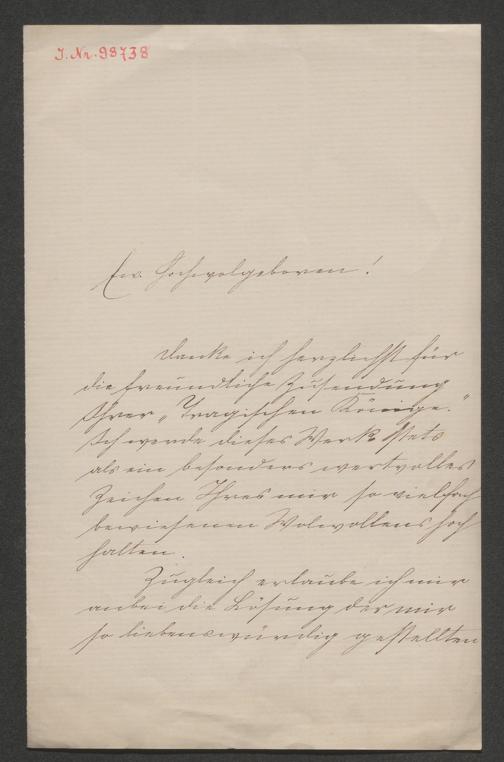 J. Nr. 98738
Ew. Hochwolgeboren!
danke ich herzlichst für
die freundliche Zusendung
Ihrer „Tragischen Könige."
Ich werde dieses Werk stets
als ein besonders wertvolles
Zeichen Ihres mir so vielfach
bewiesenen Wolwollens hoch
halten.
Zugleich erlaube ich mir
anbei die Lösung der mir
so liebenswürdig gestellten